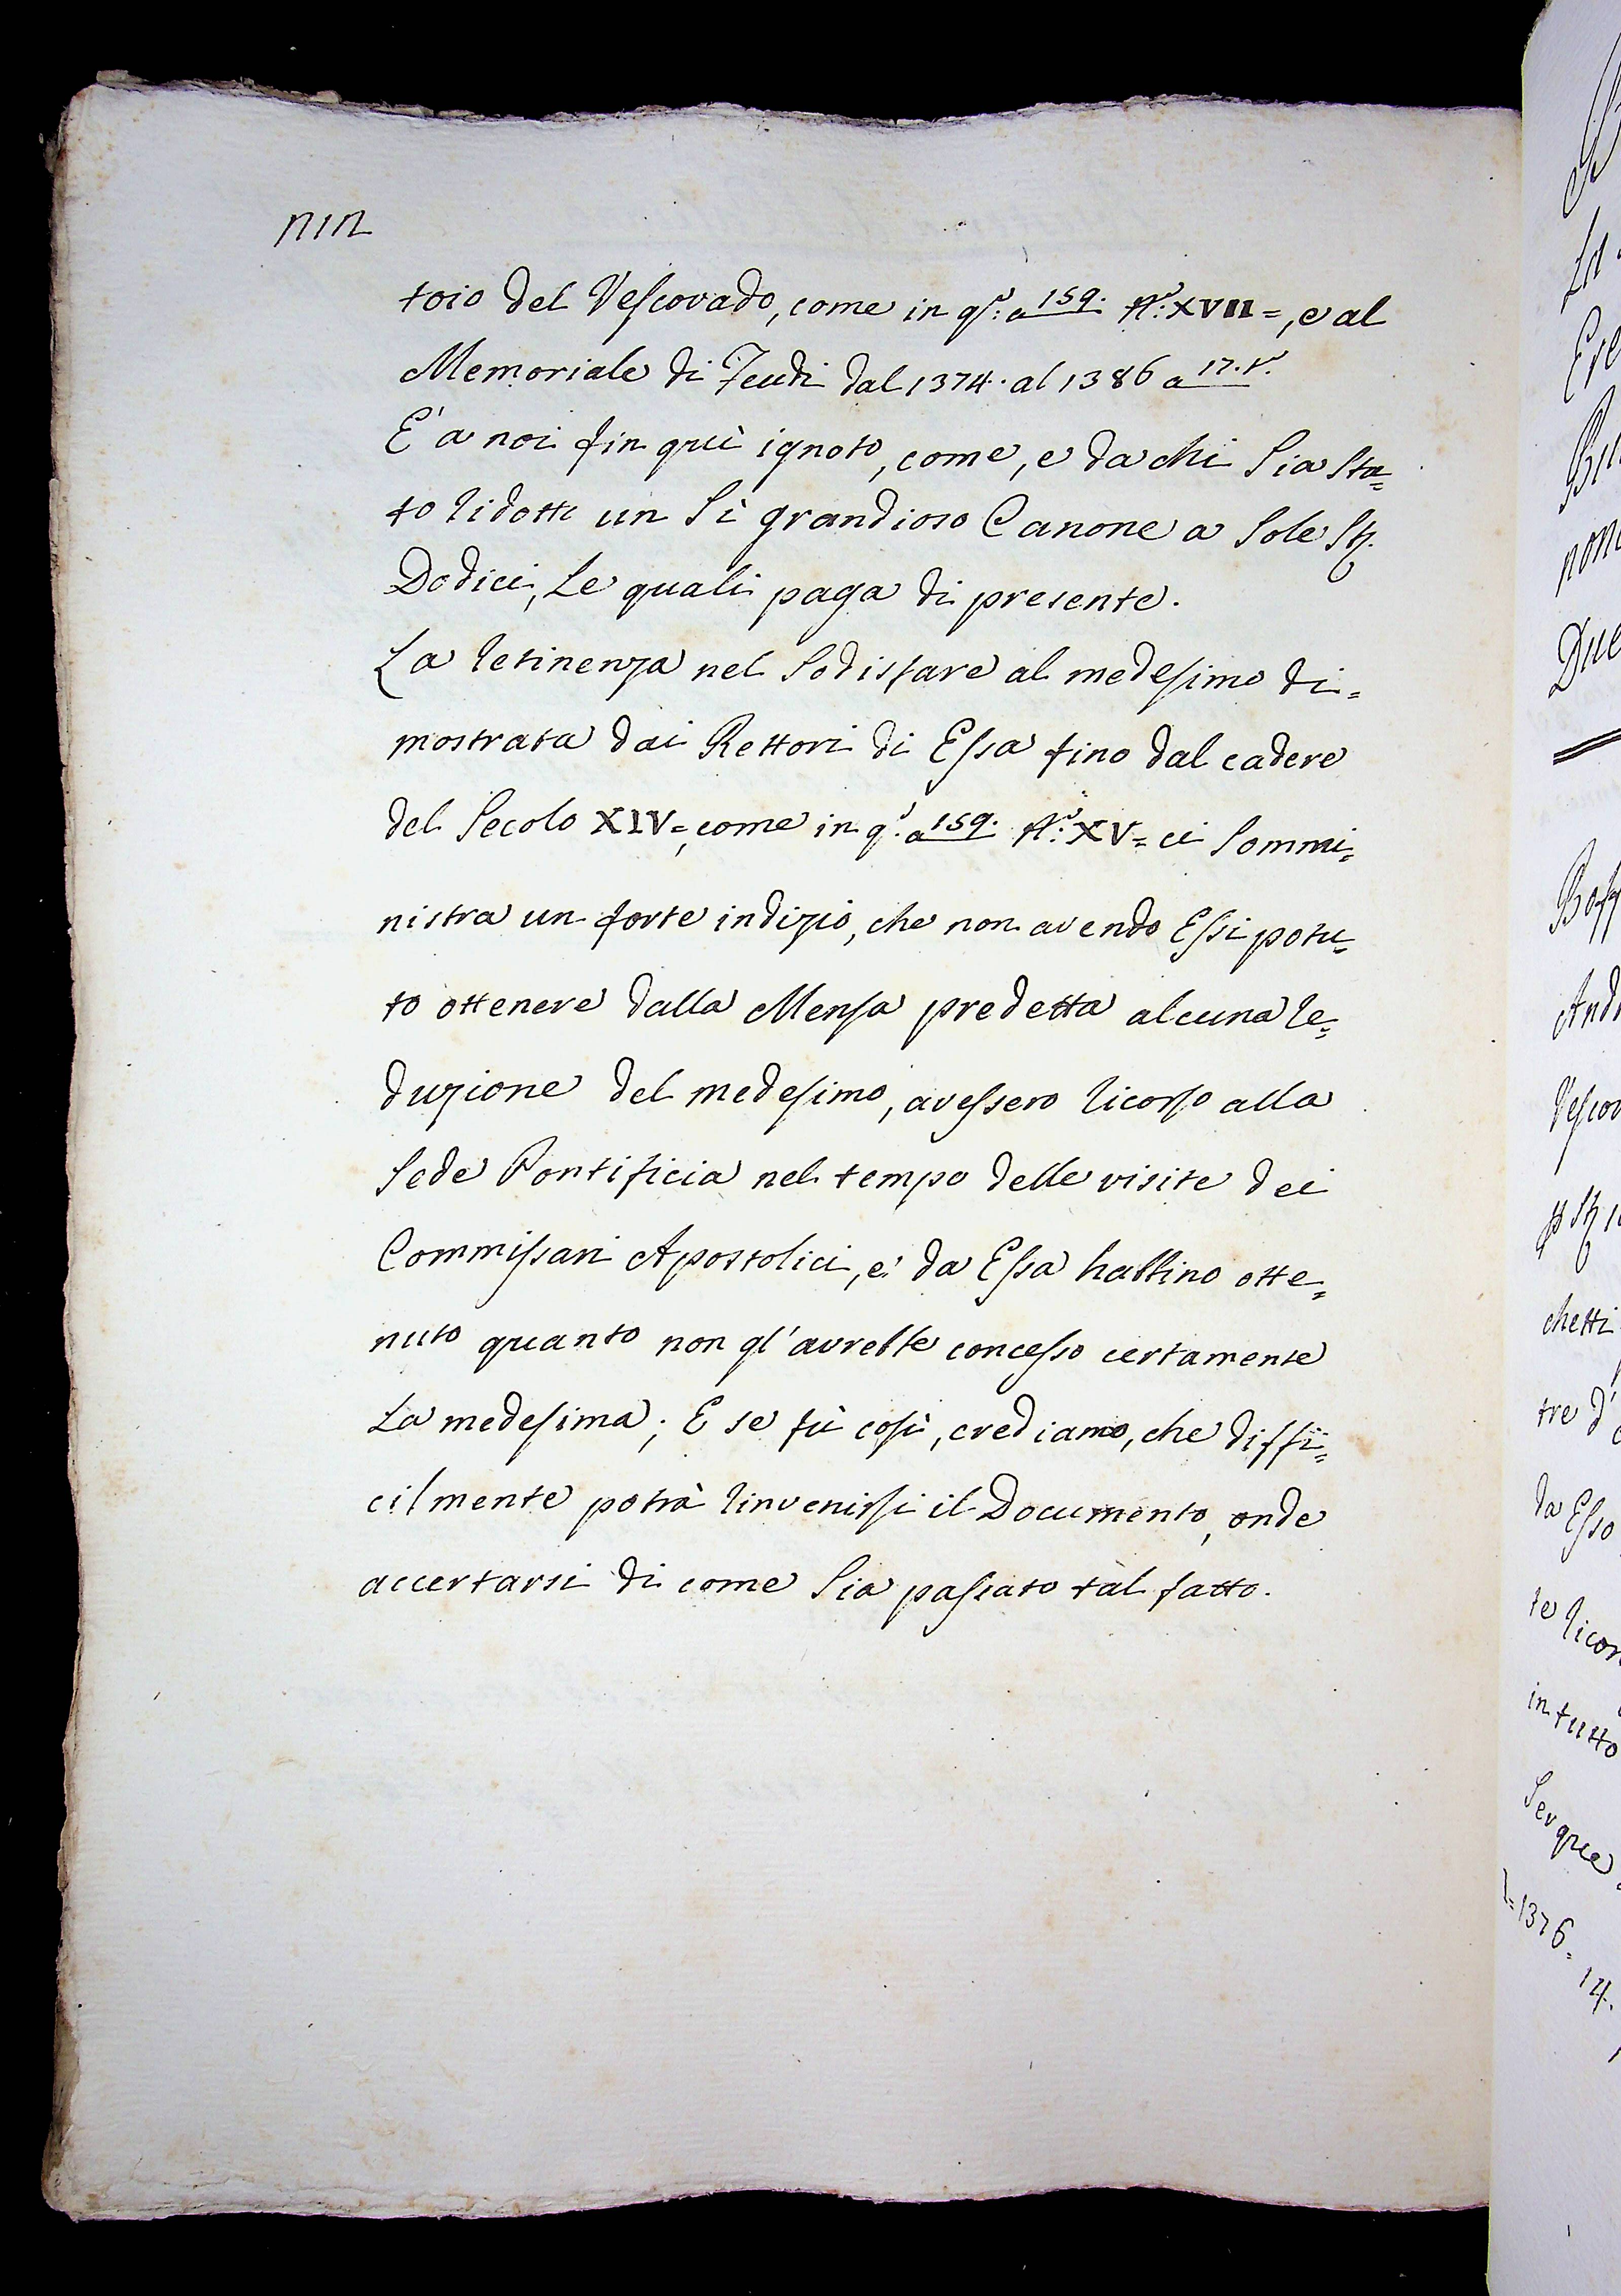 toio del Vescovado, come in q.º: a 159. N.º: XVII=, e al
Memoriale di Feudi dal 1374. al 1386 a 17. r.º
E' a noi fin quì ignoto, come, e da chi Sia Sta=
to ridotto un Sì grandioso Canone a Sole St.
Dodici, Le quali paga di presente.
La retinenza nel Sodisfare al medesimo di=
mostrata dai Rettori di Essa fino dal cadere
del Secolo XIV=, come in q.º a 159. N.º: XV= ci Sommi=
nistra un forte indizio, che non avendo Essi potu=
to ottenere dalla Mensa predetta alcuna re=
duzione del medesimo, avessero ricorso alla
Sede Pontificia nel tempo delle visite dei
Commissari Apostolici, e' da Essa habbino otte=
nuto quanto non gl'avrebbe concesso certamente
La medesima; E se fù così, crediamo, che diffi=
cilmente potrà rinvenirsi il Documento, onde
accertarsi di come Sia passato tàl fatto.
nom
Due
Vescov
chetti
tre d'
da Esso
te ricor
in tutto
1376=
14.